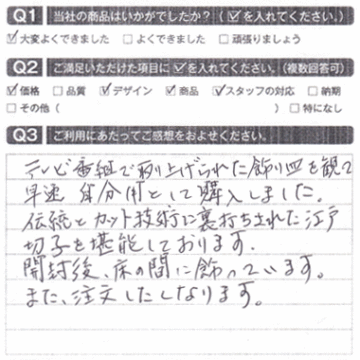 Q1 当社の商品はいかがでしたか?(☑を入れてください。)
☑大変よくできました □よくできました □頑張りましょう
Q2 ご満足いただけた項目に☑を入れてください。(複数回答可)
☑価格 □品質 ☑デザイン ☑商品 ☑スタッフの対応 □納期
□その他( ) □特になし
Q3 ご利用にあたってご感想をおよせください。
テレビ番組で取り上げられた飾り皿を観て
早速 自分用として購入しました。
伝統とカット技術に裏打ちされた江戸
切子を堪能しております.
開封後、床の間に飾っています。
また、注文したくなります。